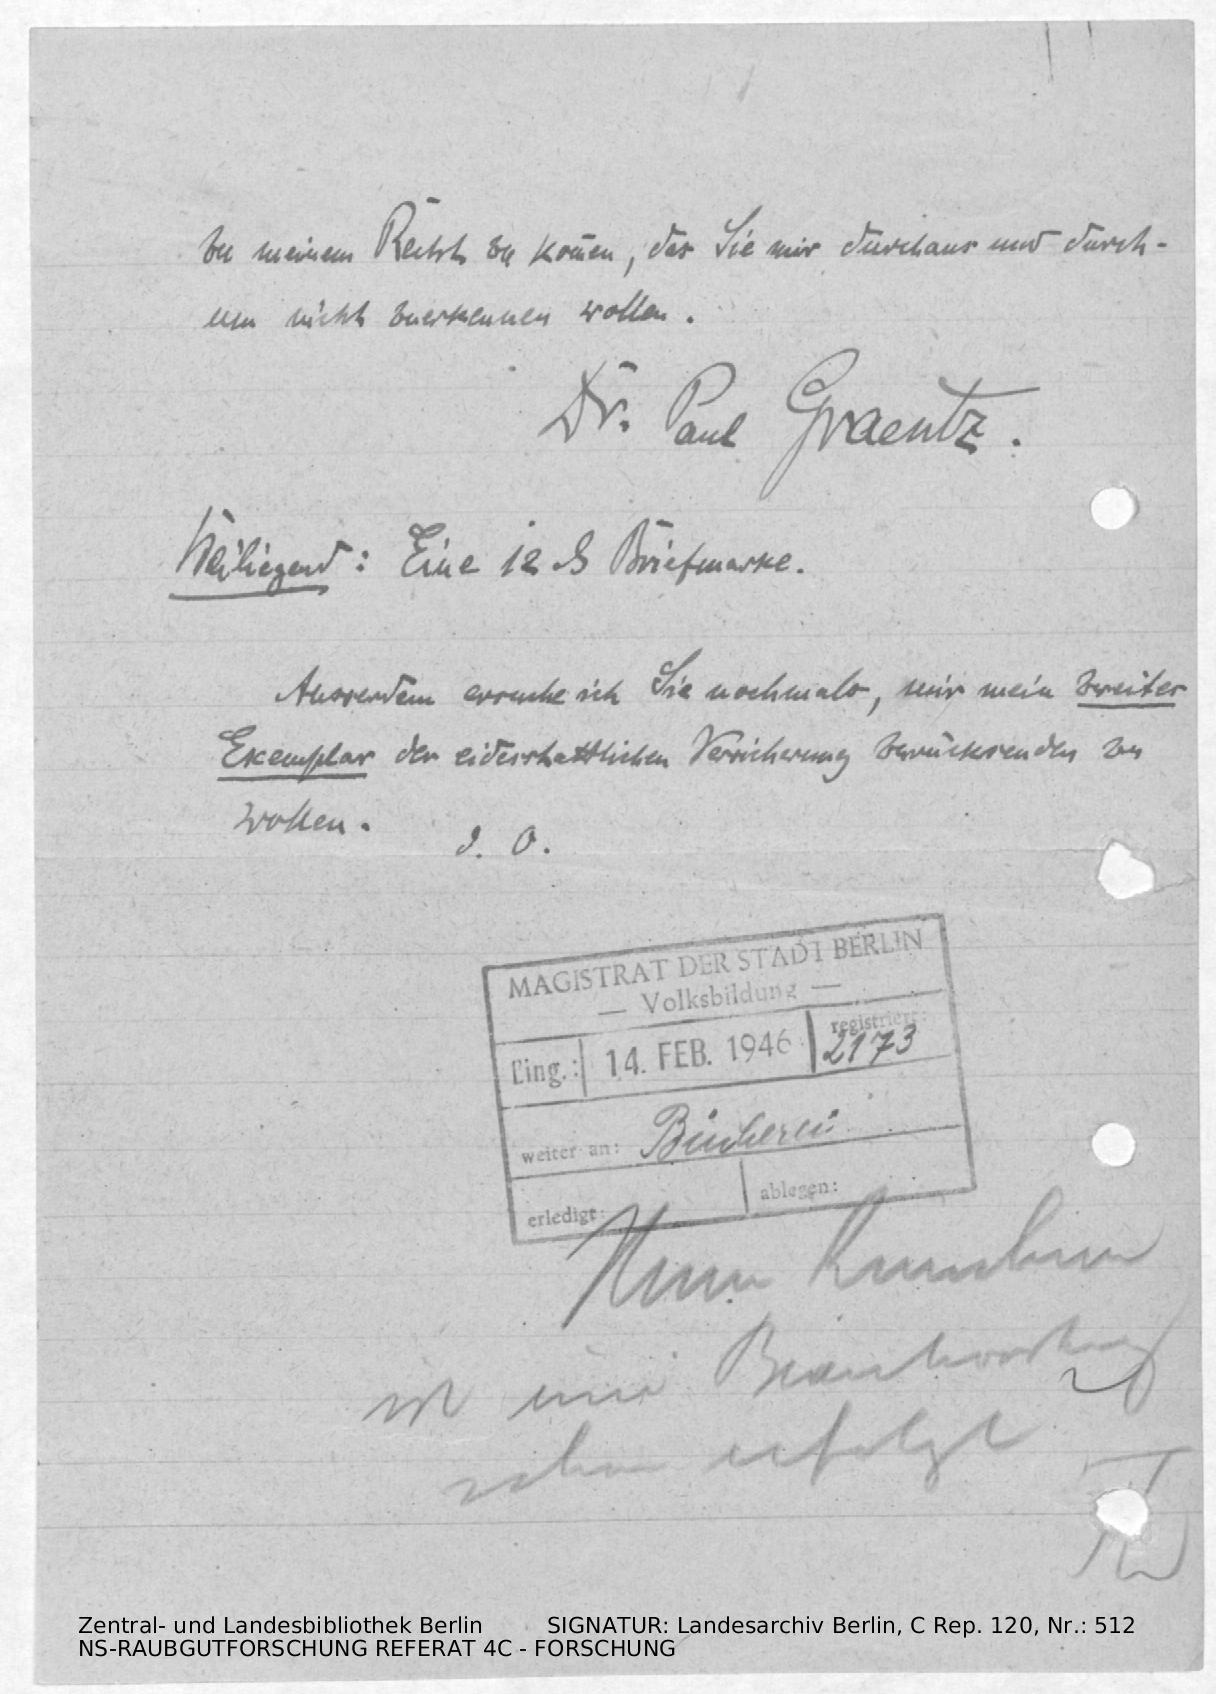 zu meinem Recht zu kom̄en, das Sie mir durchaus und durch-
um nicht zuerkennen wollen.
Dr. Paul Graentz.
Beiliegend: Eine 12 ₰ Briefmarke.
Ausserdem ersuche ich Sie nochmals, mir mein zweites
Exemplar der eidesstattlichen Versicherung zurücksenden zu
wollen.
D. O.
MAGISTRAT DER STADT BERLIN
— Volksbildung —
Eing.: 14. FEB. 1946 registriert: 2173
weiter an: Bücherei
erledigt: ablegen:
Herrn
ist eine Beantwortung
schon erfolgt
Zentral- und Landesbibliothek Berlin SIGNATUR: Landesarchiv Berlin, C Rep. 120, Nr.: 512
NS-RAUBGUTFORSCHUNG REFERAT 4C - FORSCHUNG